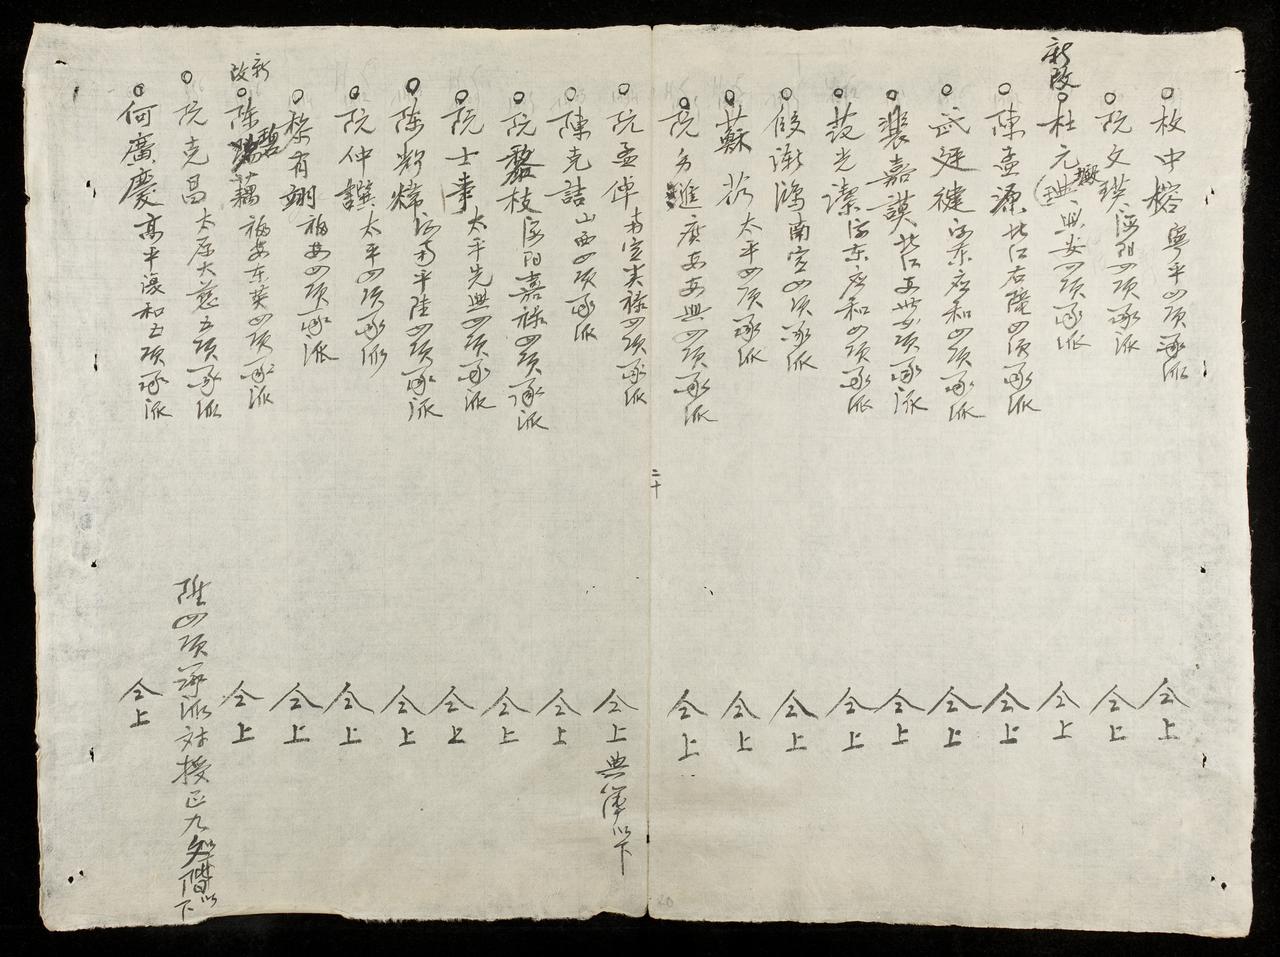 枚中榕 寧平四項承派 仝上
阮文瑛 海陽四項承派 仝上
新改 杜元 興安四項承派 仝上
陳孟源 北江右隴四項承派 仝上
武廷健 海東應和四項承派 仝上
裴嘉謨 北江安世四項承派 仝上
范光潔 海東應和四項承派 仝上
段漸鴻 南定四項承派 仝上
蘇 太平四項承派 仝上
阮多進 廣安安興四項承派 仝上
二十
阮孟倬 南定美祿四項承派 仝上 典簿以下
陳克詰 山西四項承派 仝上
阮黎枝 海陽嘉祿四項承派 仝上
阮士 太平先興四項承派 仝上
陳輝煒 河南平陸四項承派 仝上
阮仲譔 太平四項承派 仝上
黎有翊 福安四項承派 仝上
新改 陳碧藕 福安東英四項承派 仝上
阮克昌 太原大慈五項承派 陞四項承派対授正九文階以下
何廣慶 高平復和五項承派 仝上